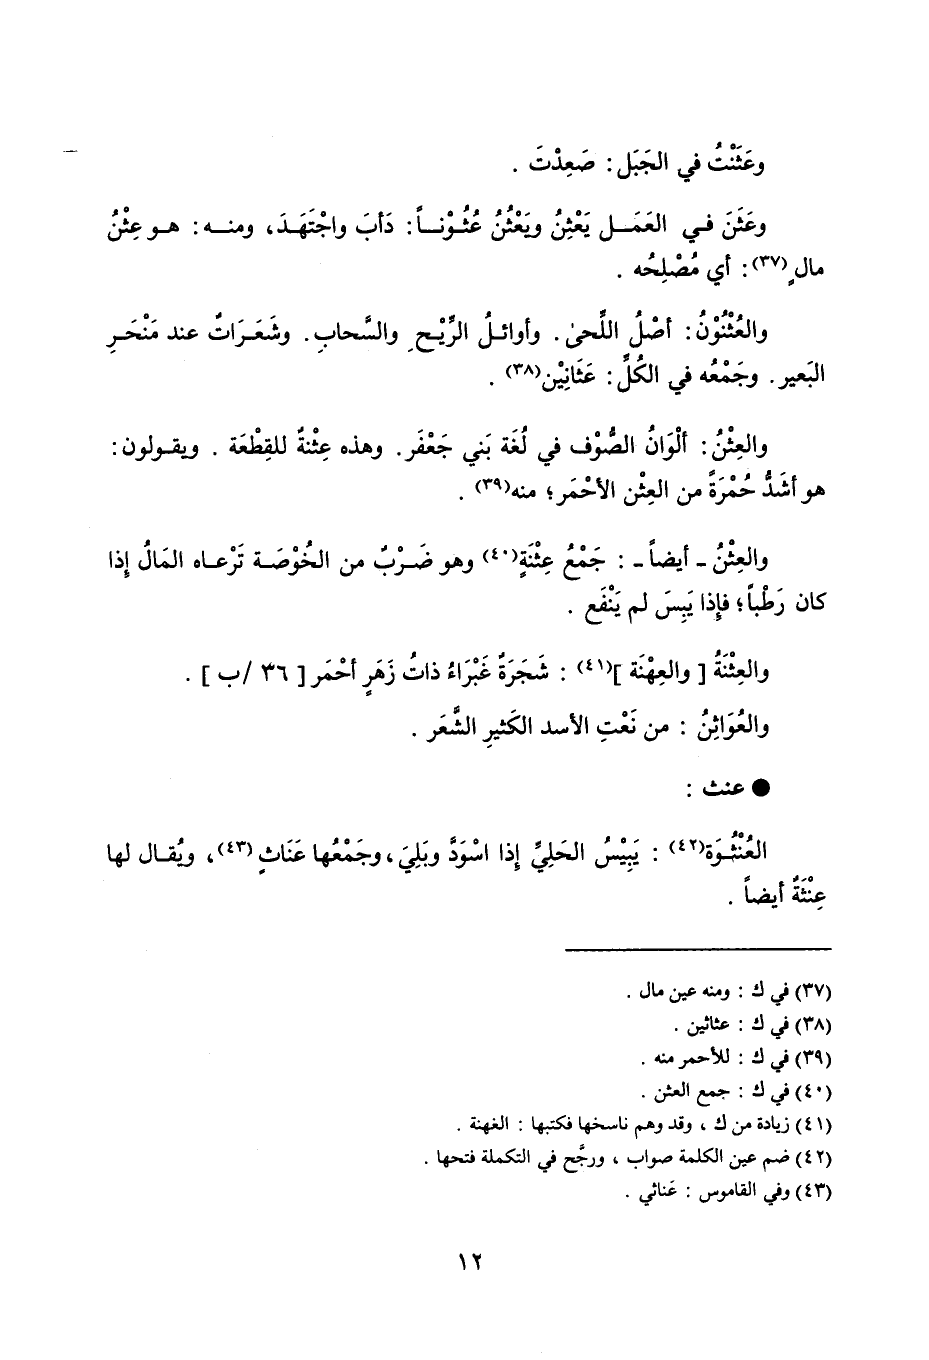 وعَثَنْتُ في الجَبَل: صَعِدْتَ .
وعَثَنَ في العَمَل يَعْثِنُ ويَعْثُنُ عُثُوْناً: دَأبَ واجْتَهَدَ، ومنه: هو عِثْنُ
مالٍ(٣٧): أي مُصْلِحُه .
والعُثْنُوْنُ: أصْلُ اللَّحىٰ. وأوائلُ الرِّيْحِ والسَّحابِ. وشَعَرَاتٌ عند مَنْحَرِ
البَعير. وجَمْعُه في الكُلِّ: عَثَانِيْن(٣٨) .
والعِثْنُ: ألْوَانُ الصُّوْف في لُغَة بَني جَعْفَر. وهذه عِثْنةٌ للقِطْعَة . ويقولون:
هو أشَدُّ حُمْرَةً من العِثْن الأحْمَر؛ منه(٣٩) .
والعِثْنُ - أيضاً - : جَمْعُ عِثْنَةٍ(٤٠) وهو ضَرْبٌ من الخُوْصَة تَرْعاه المَالُ إذا
كان رَطْباً؛ فإِذا يَبِسَ لم يَنْفَع .
والعِثْنَةُ [ والعِهْنَة ](٤١) : شَجَرَةٌ غَبْرَاءُ ذاتُ زَهَرٍ أحْمَر [ ٣٦ /ب ] .
والعُوَاثِنُ : من نَعْتِ الأسد الكَثيرِ الشَّعَر .
● عنث :
العُنْثُوَة(٤٢) : يَبِيْسُ الحَلِيِّ إذا اسْوَدَّ وبَلِيَ، وجَمْعُها عَنَاثٍ(٤٣)، ويُقال لها
عِنْثَةٌ أيضاً .
(٣٧) في ك : ومنه عين مال .
(٣٨) في ك : عثاثين .
(٣٩) في ك : للأحمر منه .
(٤٠) في ك : جمع العثن .
(٤١) زيادة من ك ، وقد وهم ناسخها فكتبها : الغهنة .
(٤٢) ضم عين الكلمة صواب ، ورجَّح في التكملة فتحها .
(٤٣) وفي القاموس : عَناثي .
١٢